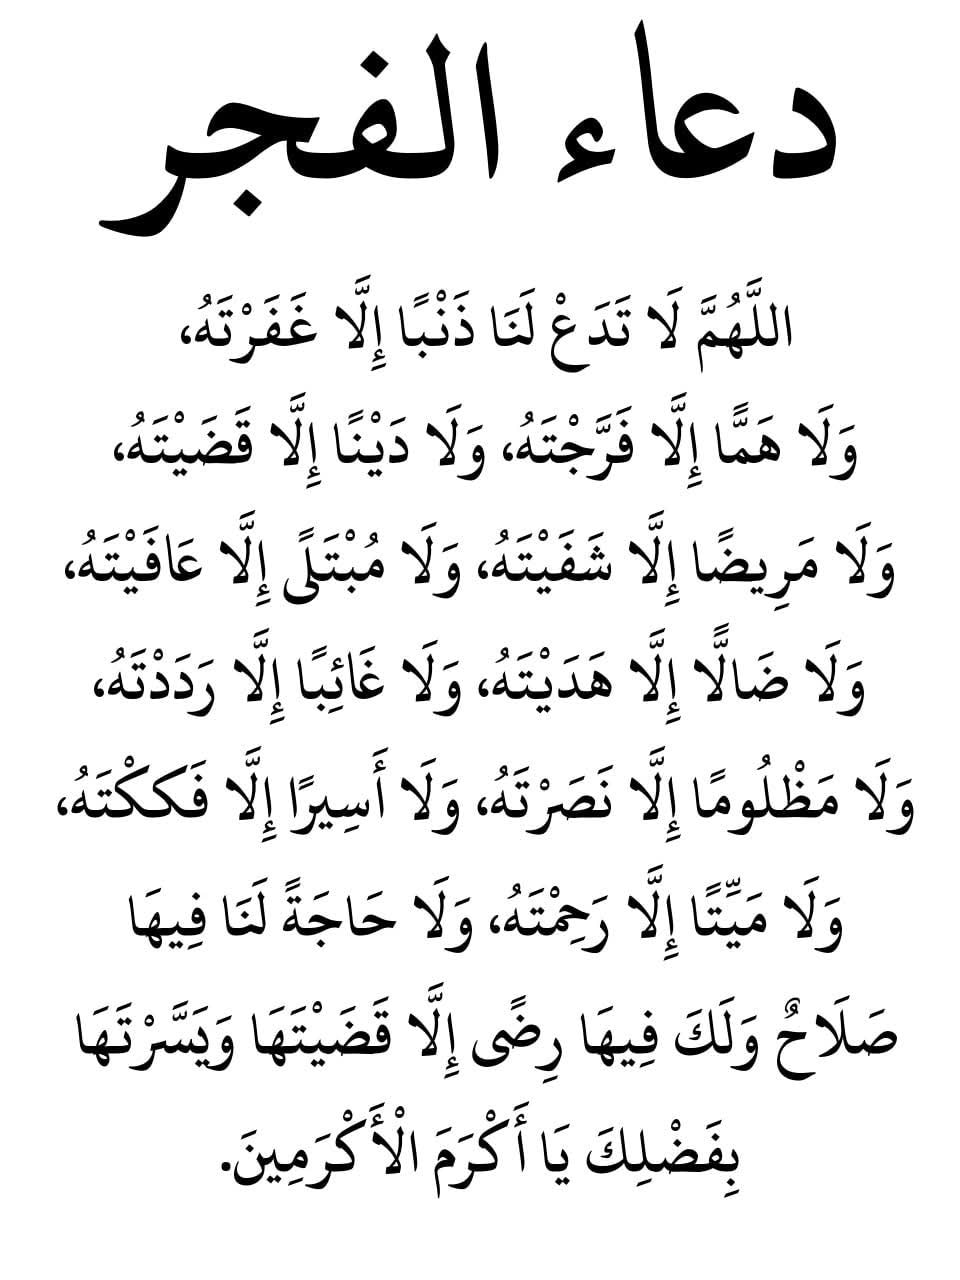 دعاء الفجر
اللَّهُمَّ لَا تَدَعْ لَنَا ذَنْبًا إِلَّا غَفَرْتَهُ،
وَلَا هَمًّا إِلَّا فَرَّجْتَهُ، وَلَا دَيْنًا إِلَّا قَضَيْتَهُ،
وَلَا مَرِيضًا إِلَّا شَفَيْتَهُ، وَلَا مُبْتَلًى إِلَّا عَافَيْتَهُ،
وَلَا ضَالًّا إِلَّا هَدَيْتَهُ، وَلَا غَائِبًا إِلَّا رَدَدْتَهُ،
وَلَا مَظْلُومًا إِلَّا نَصَرْتَهُ، وَلَا أَسِيرًا إِلَّا فَككْتَهُ،
وَلَا مَيِّتًا إِلَّا رَحِمْتَهُ، وَلَا حَاجَةً لَنَا فِيهَا
صَلَاحٌ وَلَكَ فِيهَا رِضًى إِلَّا قَضَيْتَهَا وَيَسَّرْتَهَا
بِفَضْلِكَ يَا أَكْرَمَ الْأَكْرَمِينَ.